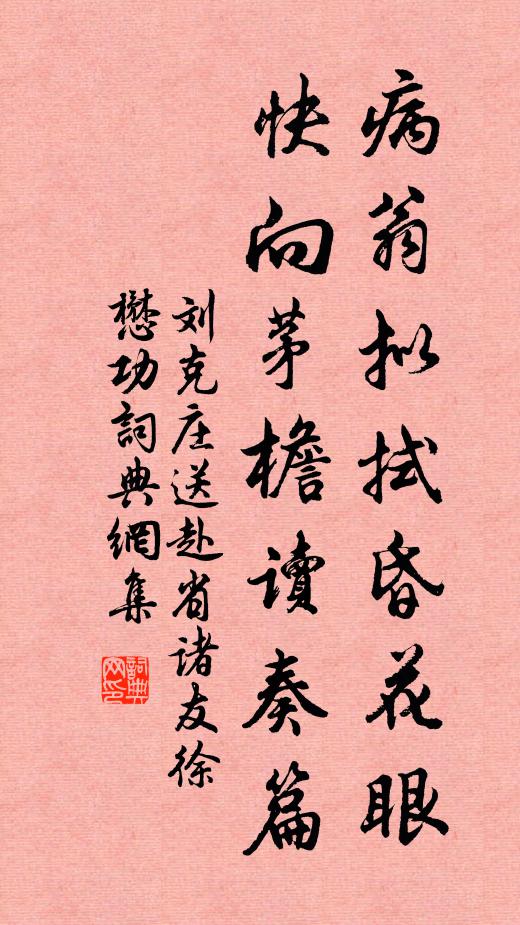 病翁拟拭昏花眼
快向茅檐读奏篇
刘克庄送赴省诸友徐
懋功詞典網集
詞典
网印